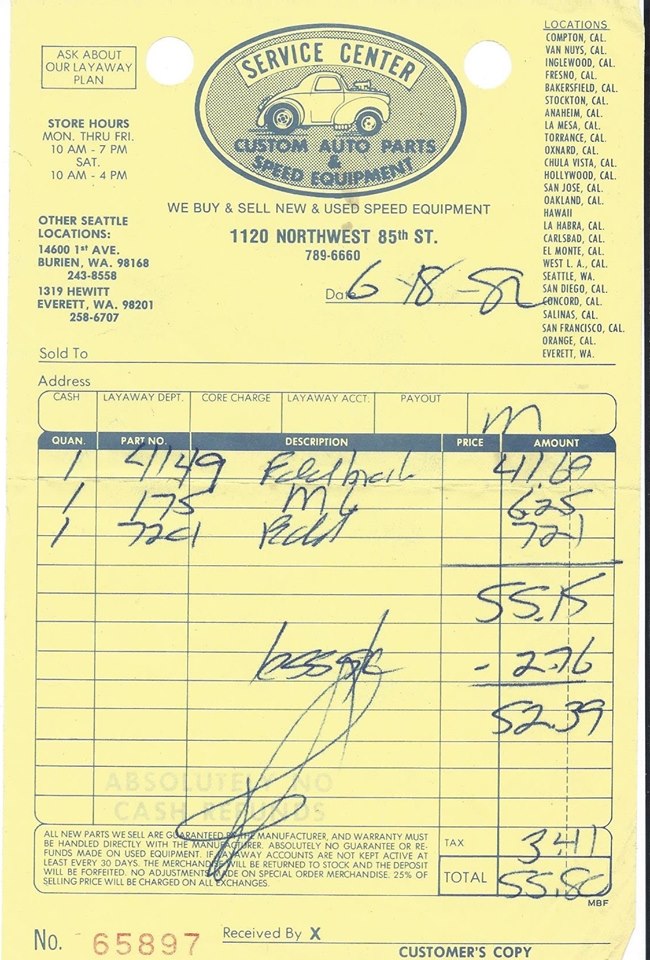 ASK ABOUT
OUR LAYAWAY
PLAN
STORE HOURS
MON. THRU FRI.
10 AM - 7 PM
SAT.
10 AM - 4 PM
OTHER SEATTLE
LOCATIONS:
14600 1st AVE.
BURIEN, WA. 98168
243-8558
1319 HEWITT
EVERETT, WA. 98201
258-6707
SERVICE CENTER
CUSTOM AUTO PARTS
&
SPEED EQUIPMENT
WE BUY & SELL NEW & USED SPEED EQUIPMENT
1120 NORTHWEST 85th ST.
789-6660
Date 6-18-82
LOCATIONS
COMPTON, CAL.
VAN NUYS, CAL.
INGLEWOOD, CAL.
FRESNO, CAL.
BAKERSFIELD, CAL.
STOCKTON, CAL.
ANAHEIM, CAL.
LA MESA, CAL.
TORRANCE, CAL.
OXNARD, CAL.
CHULA VISTA, CAL.
HOLLYWOOD, CAL.
SAN JOSE, CAL.
OAKLAND, CAL.
HAWAII
LA HABRA, CAL.
CARLSBAD, CAL.
EL MONTE, CAL.
WEST L. A., CAL.
SEATTLE, WA.
SAN DIEGO, CAL.
CONCORD, CAL.
SALINAS, CAL.
SAN FRANCISCO, CAL.
ORANGE, CAL.
EVERETT, WA.
Sold To
Address
CASH LAYAWAY DEPT. CORE CHARGE LAYAWAY ACCT: PAYOUT
M
QUAN. PART NO. DESCRIPTION PRICE AMOUNT
1 41149 41.69
1 175 6.25
1 7201 7.21
55.15
less - 2.76
52.39
ABSOLUTELY NO
CASH REFUNDS
ALL NEW PARTS WE SELL ARE GUARANTEED BY THE MANUFACTURER, AND WARRANTY MUST
BE HANDLED DIRECTLY WITH THE MANUFACTURER. ABSOLUTELY NO GUARANTEE OR RE-
FUNDS MADE ON USED EQUIPMENT. IF LAYAWAY ACCOUNTS ARE NOT KEPT ACTIVE AT
LEAST EVERY 30 DAYS. THE MERCHANDISE WILL BE RETURNED TO STOCK AND THE DEPOSIT
WILL BE FORFEITED. NO ADJUSTMENTS MADE ON SPECIAL ORDER MERCHANDISE. 25% OF
SELLING PRICE WILL BE CHARGED ON ALL EXCHANGES.
TAX 3.41
TOTAL 55.80
MBF
No. 65897
Received By X
CUSTOMER'S COPY